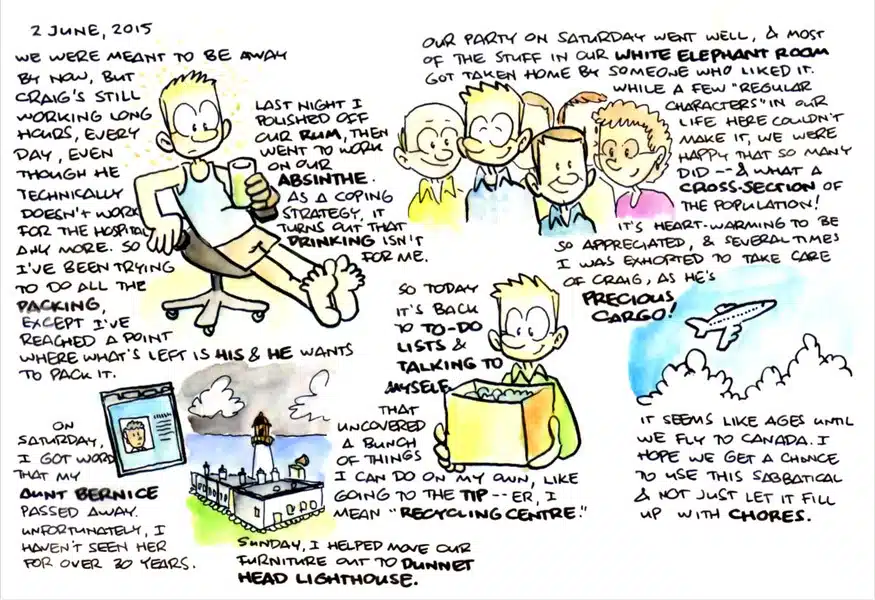 2 JUNE, 2015
WE WERE MEANT TO BE AWAY
BY NOW, BUT
CRAIG'S STILL
WORKING LONG
HOURS, EVERY
DAY, EVEN
THOUGH HE
TECHNICALLY
DOESN'T WORK
FOR THE HOSPITAL
ANY MORE. SO
I'VE BEEN TRYING
TO DO ALL THE
PACKING,
EXCEPT I'VE
REACHED A POINT
WHERE WHAT'S LEFT IS HIS & HE WANTS
TO PACK IT.
LAST NIGHT I
POLISHED OFF
OUR RUM, THEN
WENT TO WORK
ON OUR
ABSINTHE.
AS A COPING
STRATEGY, IT
TURNS OUT THAT
DRINKING ISN'T
FOR ME.
OUR PARTY ON SATURDAY WENT WELL, & MOST
OF THE STUFF IN OUR WHITE ELEPHANT ROOM
GOT TAKEN HOME BY SOMEONE WHO LIKED IT.
WHILE A FEW "REGULAR
CHARACTERS" IN OUR
LIFE HERE COULDN'T
MAKE IT, WE WERE
HAPPY THAT SO MANY
DID -- & WHAT A
CROSS-SECTION OF
THE POPULATION!
IT'S HEART-WARMING TO BE
SO APPRECIATED, & SEVERAL TIMES
I WAS EXHORTED TO TAKE CARE
OF CRAIG, AS HE'S
PRECIOUS
CARGO!
ON
SATURDAY,
I GOT WORD
THAT MY
AUNT BERNICE
PASSED AWAY.
UNFORTUNATELY, I
HAVEN'T SEEN HER
FOR OVER 30 YEARS.
SUNDAY, I HELPED MOVE OUR
FURNITURE OUT TO DUNNET
HEAD LIGHTHOUSE.
SO TODAY
IT'S BACK
TO TO-DO
LISTS &
TALKING TO
MYSELF.
THAT
UNCOVERED
A BUNCH
OF THINGS
I CAN DO ON MY OWN, LIKE
GOING TO THE TIP -- ER, I
MEAN "RECYCLING CENTRE."
IT SEEMS LIKE AGES UNTIL
WE FLY TO CANADA. I
HOPE WE GET A CHANCE
TO USE THIS SABBATICAL
& NOT JUST LET IT FILL
UP WITH CHORES.